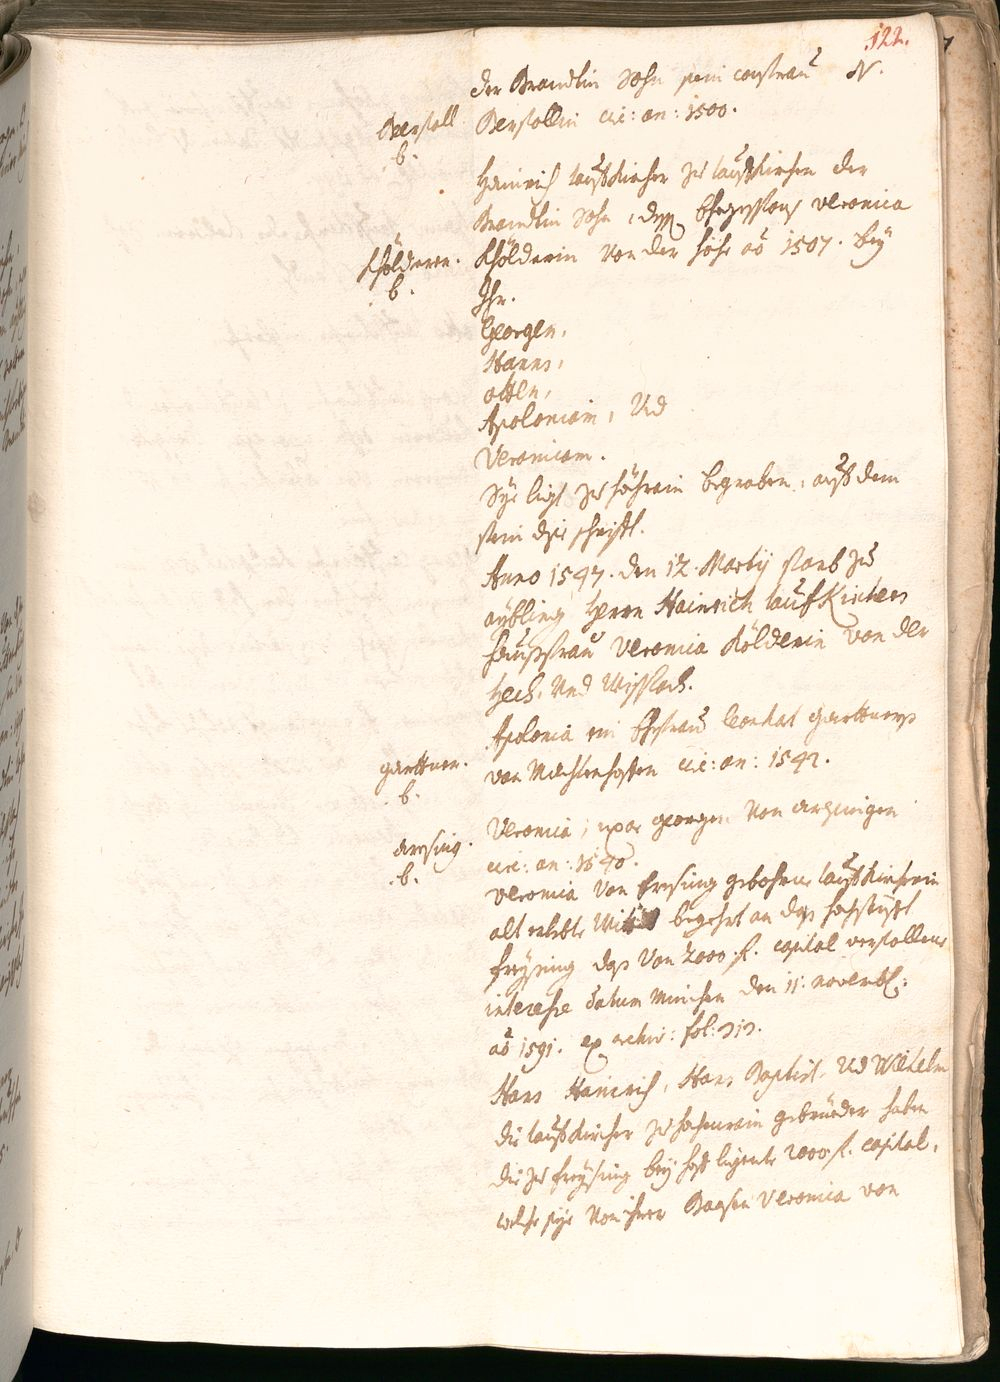 122.
der Brandlin Sohn sein consfrau N.
Berstoll
b.
Berstollin circ: an: 1500.
Hainrich lauffkircher zu lauffkirchen der
Brandlin Sohn, dess Ehegesstons veronica
Khölderer.
b.
Khölderin von der höhe ao 1507. bey
Ihr.
Georgen,
Hanns,
otten,
Apoloniam, Und
Veronicam.
Sye ligt zu höhrain begraben, auff dem
stein dise schrifft.
Anno 1547. den 12. Martij starb zu
aybling Herrn Hainrich lauffkirchers
haussfrau Veronica Kölderin von der
Hech. Und Wisslach.
Apolonia ein Ehefrau leonhat garttners
garttner.
b.
von Machlenhoffen circ: an: 1542.
Veronica, uxor georgen von arhsingen
aresing.
b.
circ: an: 1540.
veronica von Eresing gebohrne lauffkircherin
alt erlebte begehrt an das hochstüfft
freysing das von 2000 fl. capital verfallene
interesse datum München den 11. novembr:
ao 1591. ex archiv: fol: 313.
Hans Hainrich, Hans Baptist, Und Wilhelm
die lauffkircher zu hohenrain gebrüeder haben
die zu freysing bey hoff ligente 2000 fl. capital,
welche sye von ihrer Baasen Veronica von